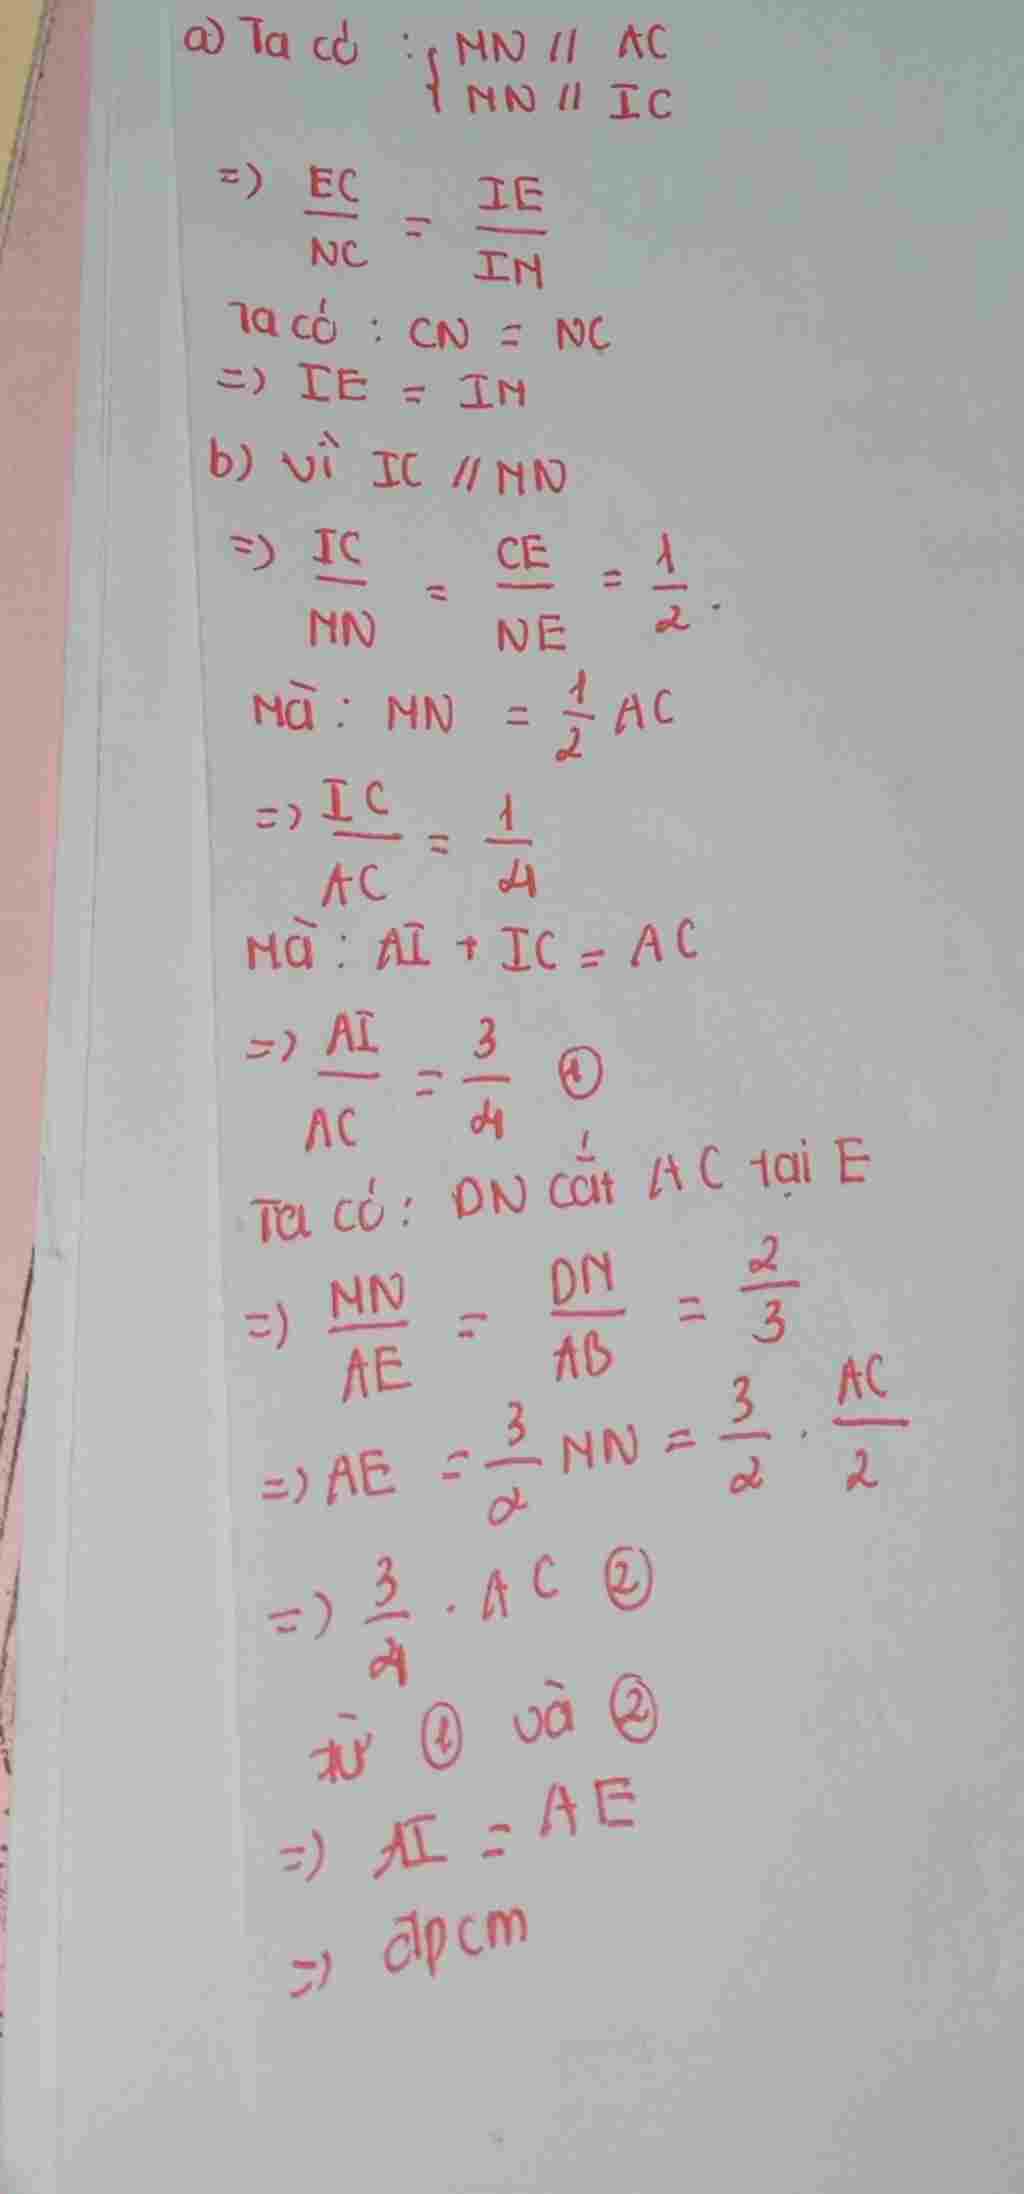 a) Ta có : { MN // AC
MN // IC
=) EC/NC = IE/IM
Ta có : CN = NC
=) IE = IM
b) Vì IC // MN
=) IC/MN = CE/NE = 1/2.
Mà : MN = 1/2 AC
=) IC/AC = 1/4
Mà : AI + IC = AC
=) AI/AC = 3/4 ①
Ta có : DN cắt AC tại E
=) MN/AE = DM/AB = 2/3
=) AE = 3/2 MN = 3/2 . AC/2
=) 3/4 . AC ②
từ ① và ②
=) AI = AE
=) đpcm